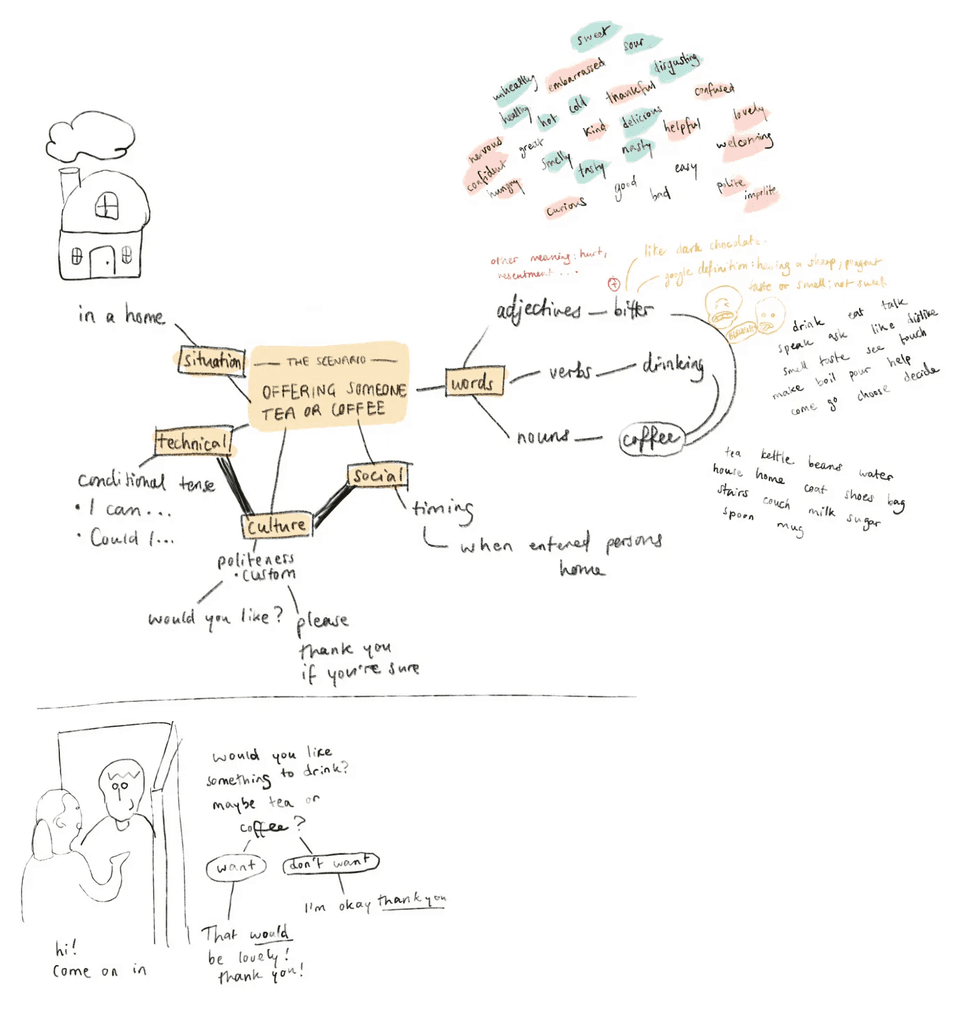 sweet
sour
disgusting
unhealthy
embarrassed
thankful
confused
healthy
hot
cold
kind
delicious
helpful
lovely
nervous
great
smelly
tasty
nasty
welcoming
confident
hungry
curious
good
bad
easy
polite
impolite
other meaning: hurt,
resentment...
like dark chocolate.
google definition: having a sharp, pungent
taste or smell; not sweet.
in a home
situation
THE SCENARIO
OFFERING SOMEONE
TEA OR COFFEE
words
adjectives – bitter
verbs – drinking
nouns – coffee
drink eat talk
speak ask like dislike
smell taste see touch
make boil pour help
come go choose decide
tea kettle beans water
house home coat shoes bag
stairs couch milk sugar
spoon mug
technical
conditional tense
• I can...
• Could I...
social
timing
when entered persons
home
culture
politeness
• custom
would you like?
please
thank you
if you're sure
would you like
something to drink?
maybe tea or
coffee?
want
don't want
I'm okay thank you
That would
be lovely!
thank you!
hi!
come on in